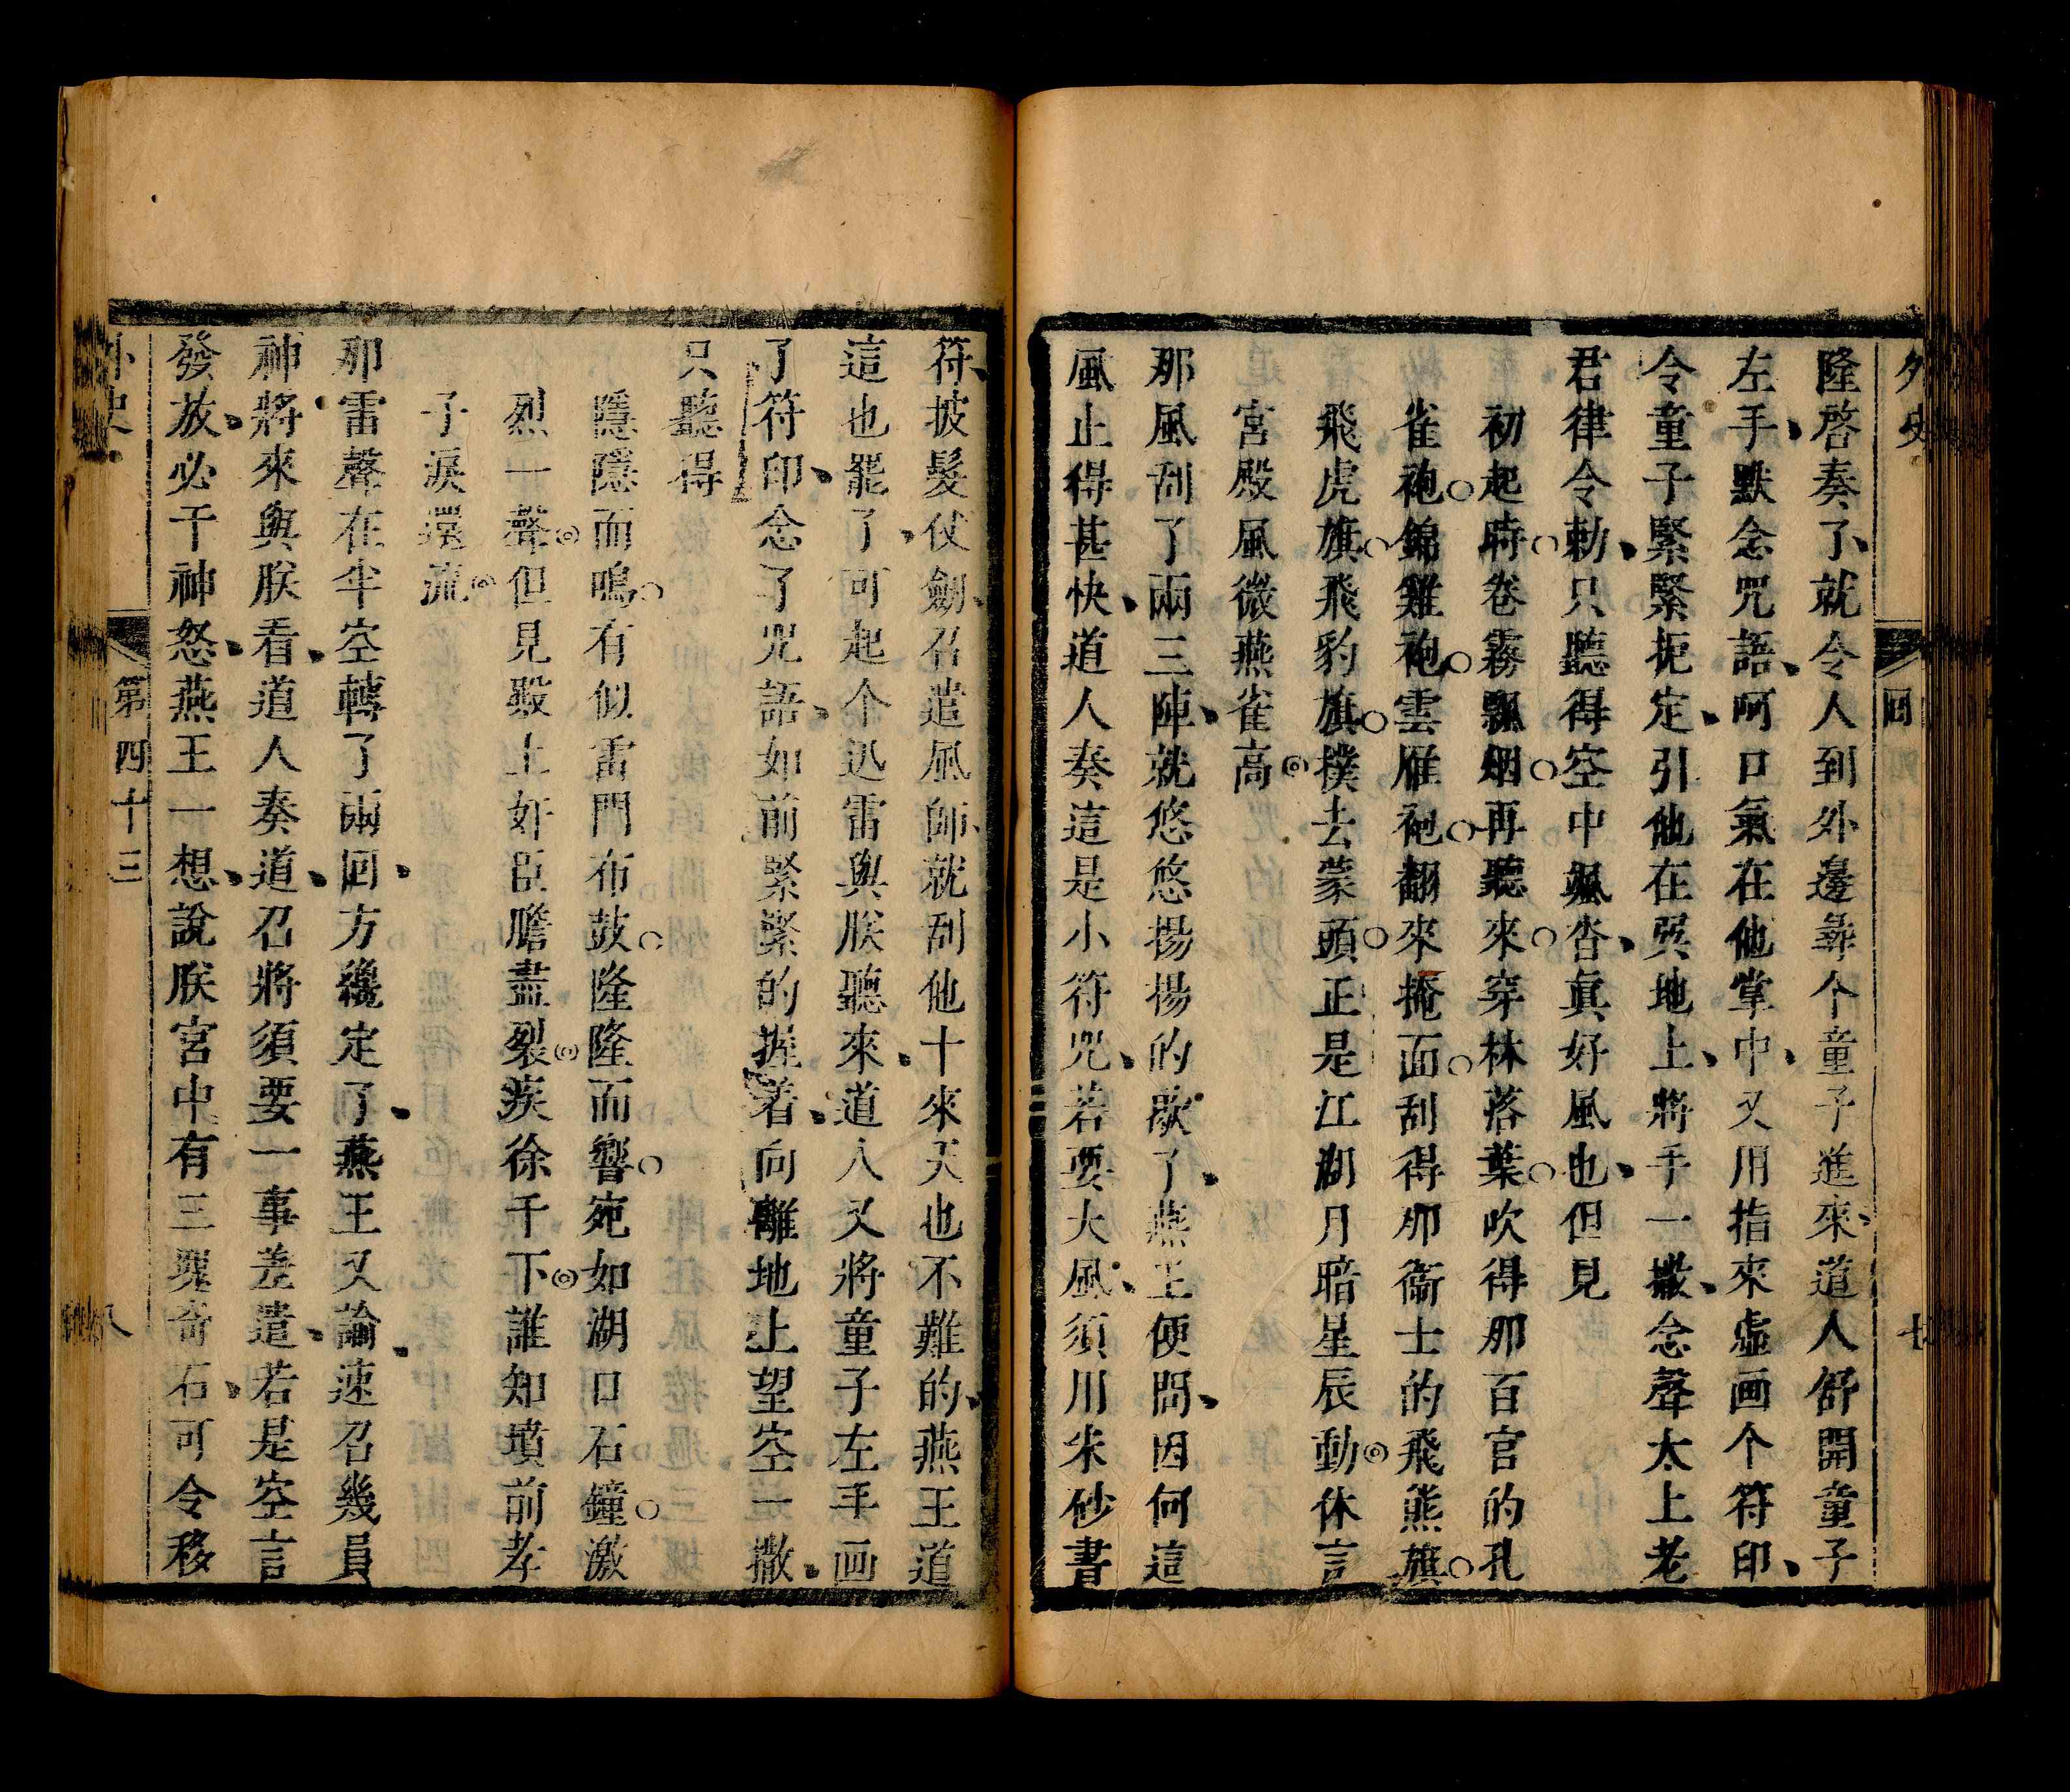 外史
回
七
隆啓奏了、就令人到外邊尋个童子進來、道人舒開童子
左手、默念咒語、呵口氣在他掌中、又用指來虛画个符印、
令童子緊緊扼定、引他在巽地上、將手一撒、念聲太上老
君律令勅、只聽得空中颯杳、眞好風也、但見
初起時○卷霧飄烟○再聽來○穿林落葉○吹得那百官的孔
雀袍○錦雞袍○雲雁袍○翻來掩面○刮得那衞士的飛熊旗○
飛虎旗○飛豹旗○撲去蒙頭○正是江湖月暗星辰動◎休言
宮殿風微燕雀高◎
那風刮了兩三陣、就悠悠揚揚的歇了、燕王便問、因何這
風止得甚快、道人奏這是小符咒、若要大風、須用朱砂書
符、披髮仗劍、召遣風師、就刮他十來天也不難的、燕王道
這也罷了、可起个迅雷與朕聽來、道人又將童子左手画
了符印、念了咒語、如前緊緊的握着、向離地上望空一撒、
只聽得
隱隱而鳴○有似雷門布鼓○隆隆而響○宛如湖口石鐘○激
烈一聲◎但見殿上奸臣膽盡裂◎疾徐千下◎誰知墳前孝
子淚還流◎
那雷聲在半空轉了兩回、方纔定了、燕王又諭、速召幾員
神將來與朕看、道人奏道、召將須要一事差遣、若是空言
發放、必干神怒、燕王一想、說朕宮中有三異奇石、可令移
外史
第四十三
八